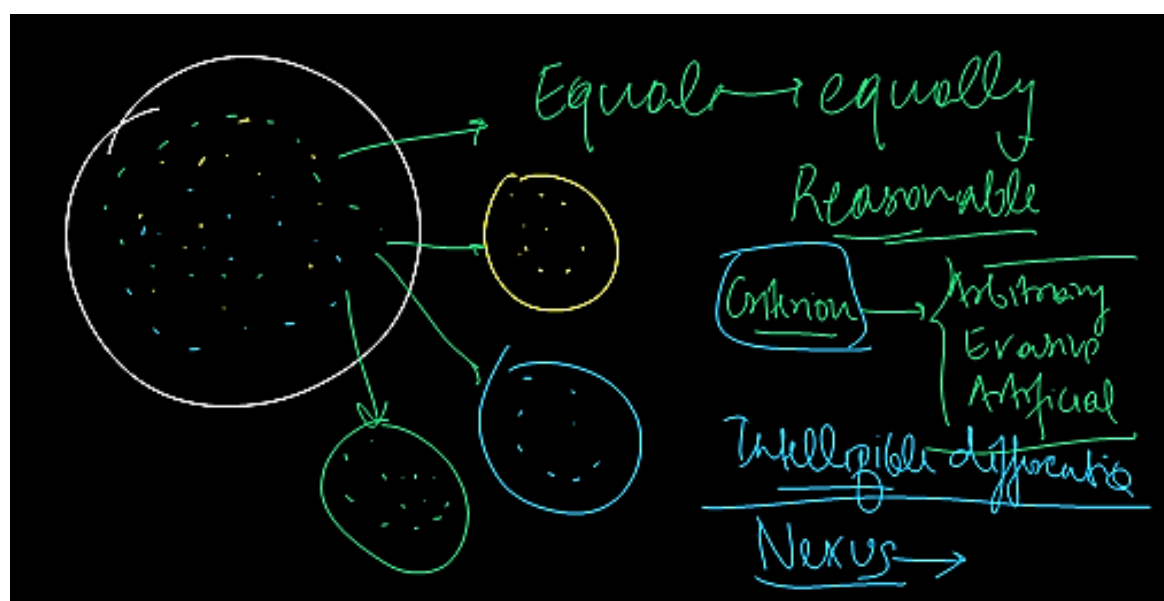 Equals → equally
Reasonable
Criterion → Arbitrary
Evasive
Artificial
Intelligible differentia
Nexus →